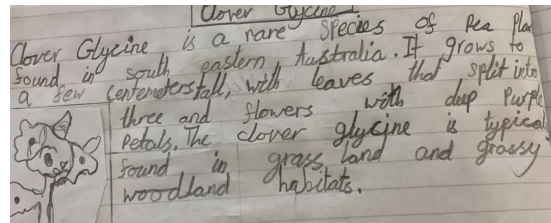 Clover Glycine
Clover Glycine is a rare species of Pea Plan
found in south eastern Australia. It grows to
a few centemeters tall, with leaves that split into
three and flowers with deep Purple
Petals. The clover glycine is typical
found in grass land and grassy
woodland habitats.